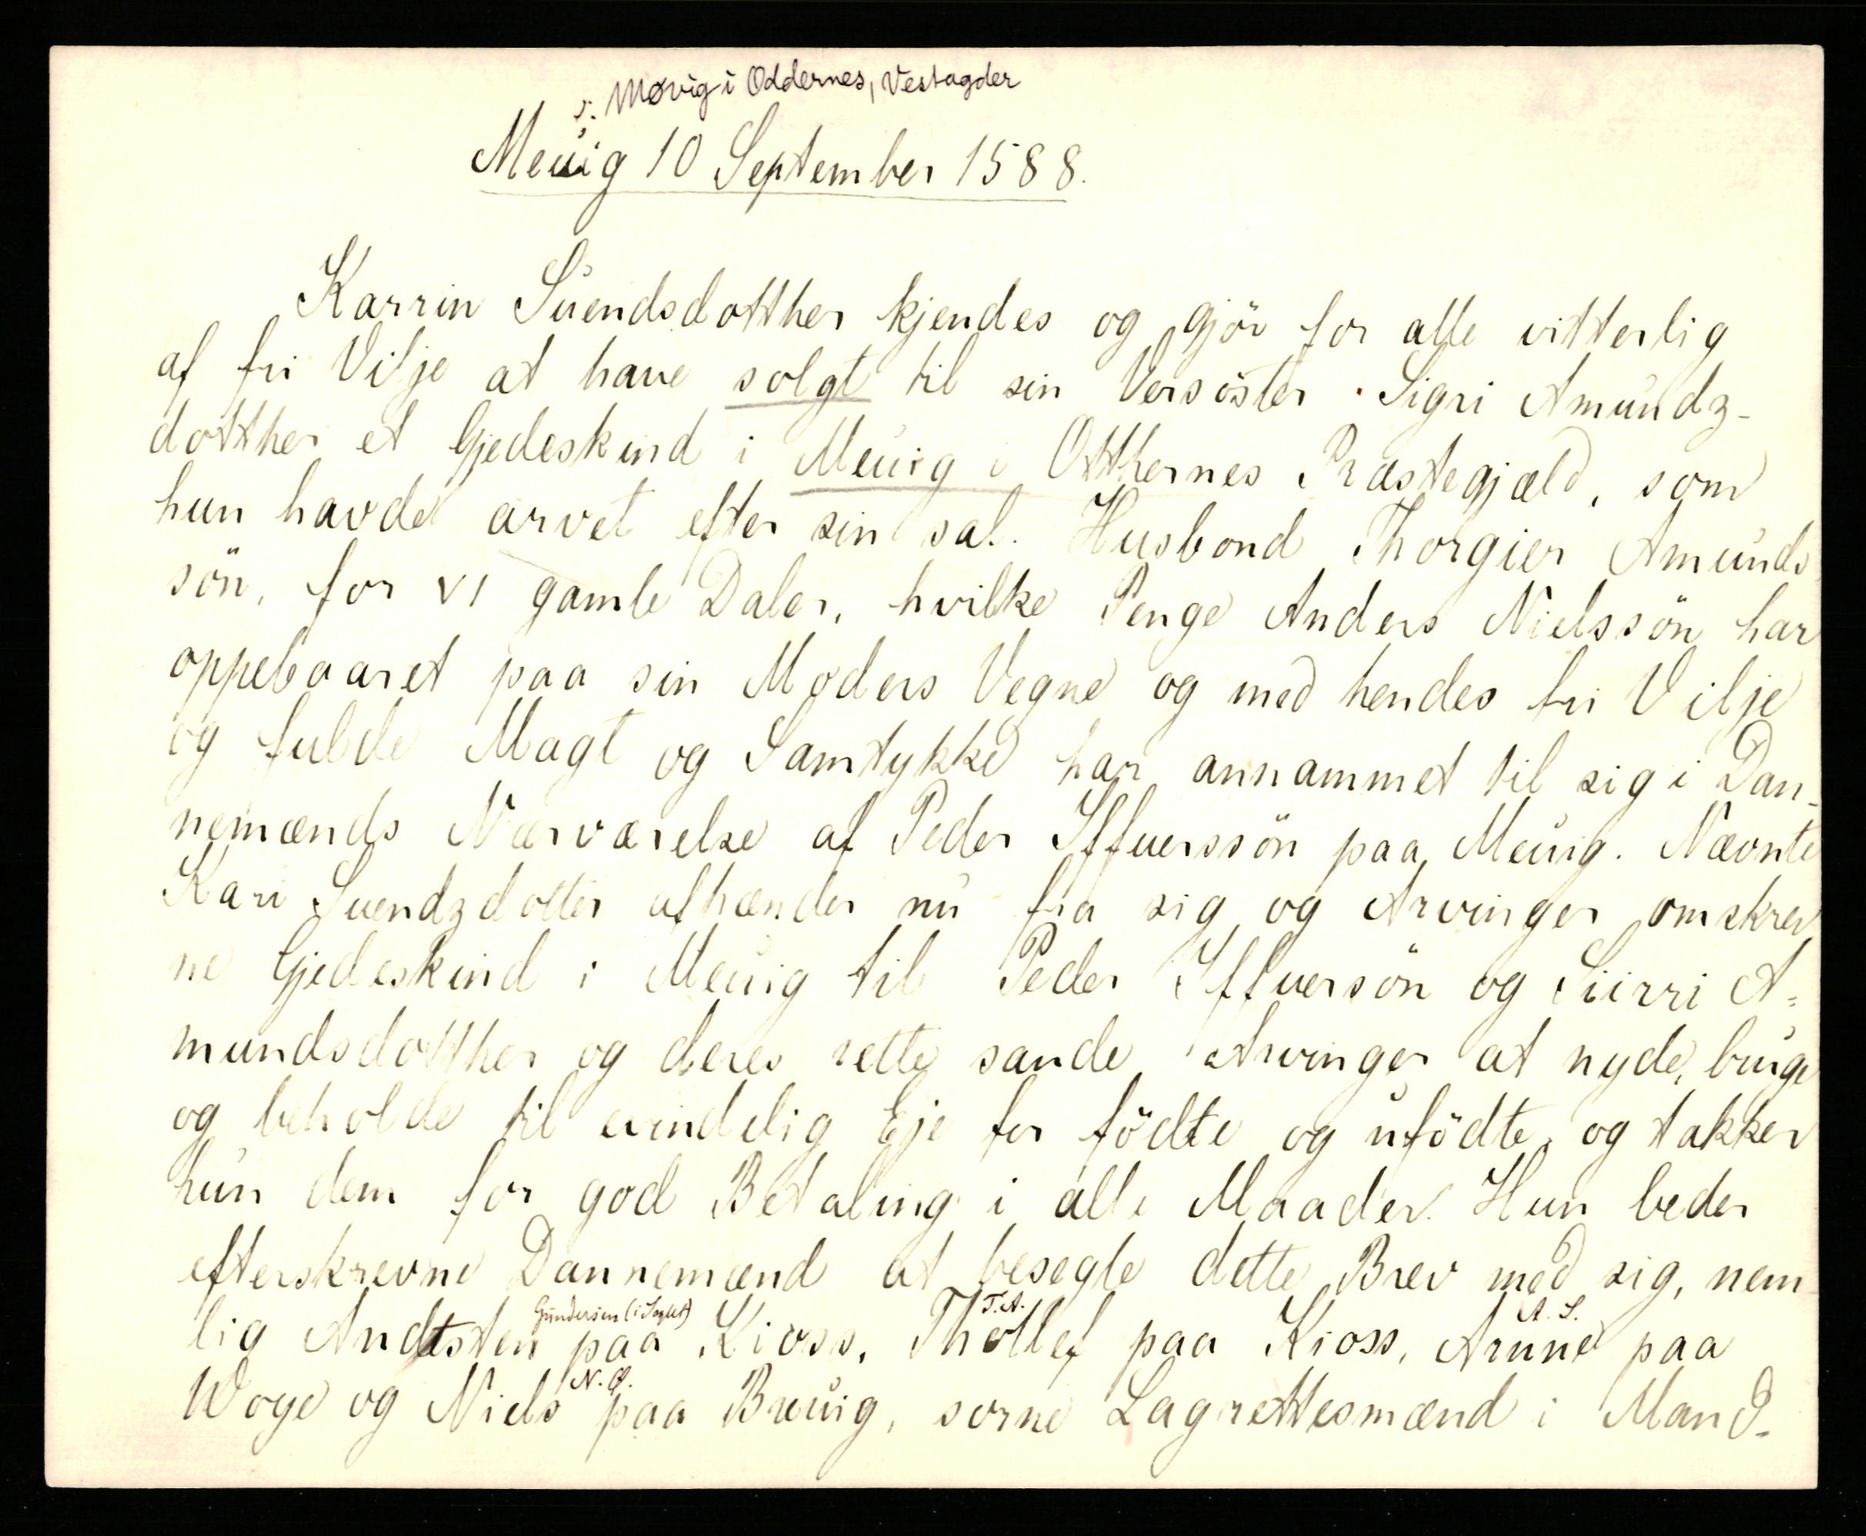 ɔ: Møvig i Oddernes, Vestagder
Meuig 10 September 1588.
Karrin Suendsdotther kjendes og gjör for alle vitterlig
af fri Vilje at have solgt til sin Versöster Sigri Amundz-
dotther et Gjedeskind i Meuig i Otthernes Præstegjæld, som
hun havde arvet efter sin sal. Husbond Thorgier Amunds
sön, for VI gamle Daler, hvilke Penge Anders Nielssön har
oppebaaret paa sin Moders Vegne og med hendes fri Vilje
og fulde Magt og Samtykke har annammet til sig i Dan-
nemænds Nærværelse af Peder Iffuerssön paa Meuig. Nævnte
Kari Suendzdotter afhænder nu fra sig og Arvinger omskrev
ne Gjedeskind i Meuig til Peder Iffuersön og Siirri A=
mundsdotther og deres rette sande Arvinger at nyde, bruge
og beholde til evindelig Eje for födte og ufödte, og takker
hun dem for god Betaling i alle Maader. Hun beder
efterskrevne Dannemænd at besegle dette Brev med sig, nem
Gundersen (i Seglet) T.A. A. S.
lig Andtsten paa Kioss, Thollef paa Kioss, Arune paa
N. O.
Woge og Niels paa Breuig, sorne Lagrettesmænd i Mand-